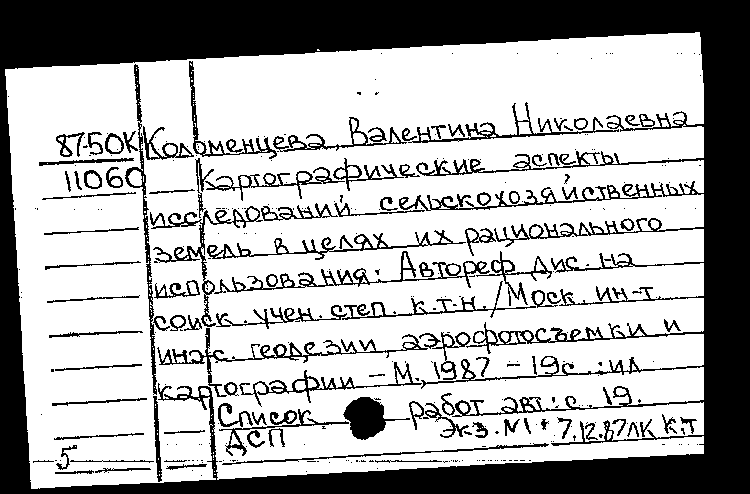 87-50К Коломенцева, Валентина Николаевна
11060 Картографические аспекты
исследований сельскохозяйственных
земель в целях их рационального
использования: Автореф. дис. на
соиск. учен. степ. к.т.н. / Моск. ин-т.
инж. геодезии, аэрофотосъемки и
картографии – М., 1987 – 19с. : ил
Список работ авт.: с. 19.
ДСП Экз. №1 + 7.12.87 ЛК К.Т
5